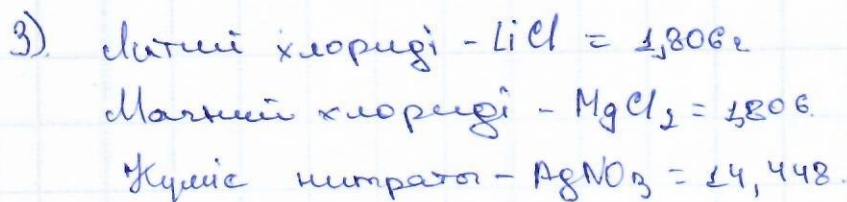 3). Литий хлориді - LiCl = 1,806г
Магний хлориді - MgCl₂ = 1,806.
Күміс нитраты - AgNO₃ = 14,448.